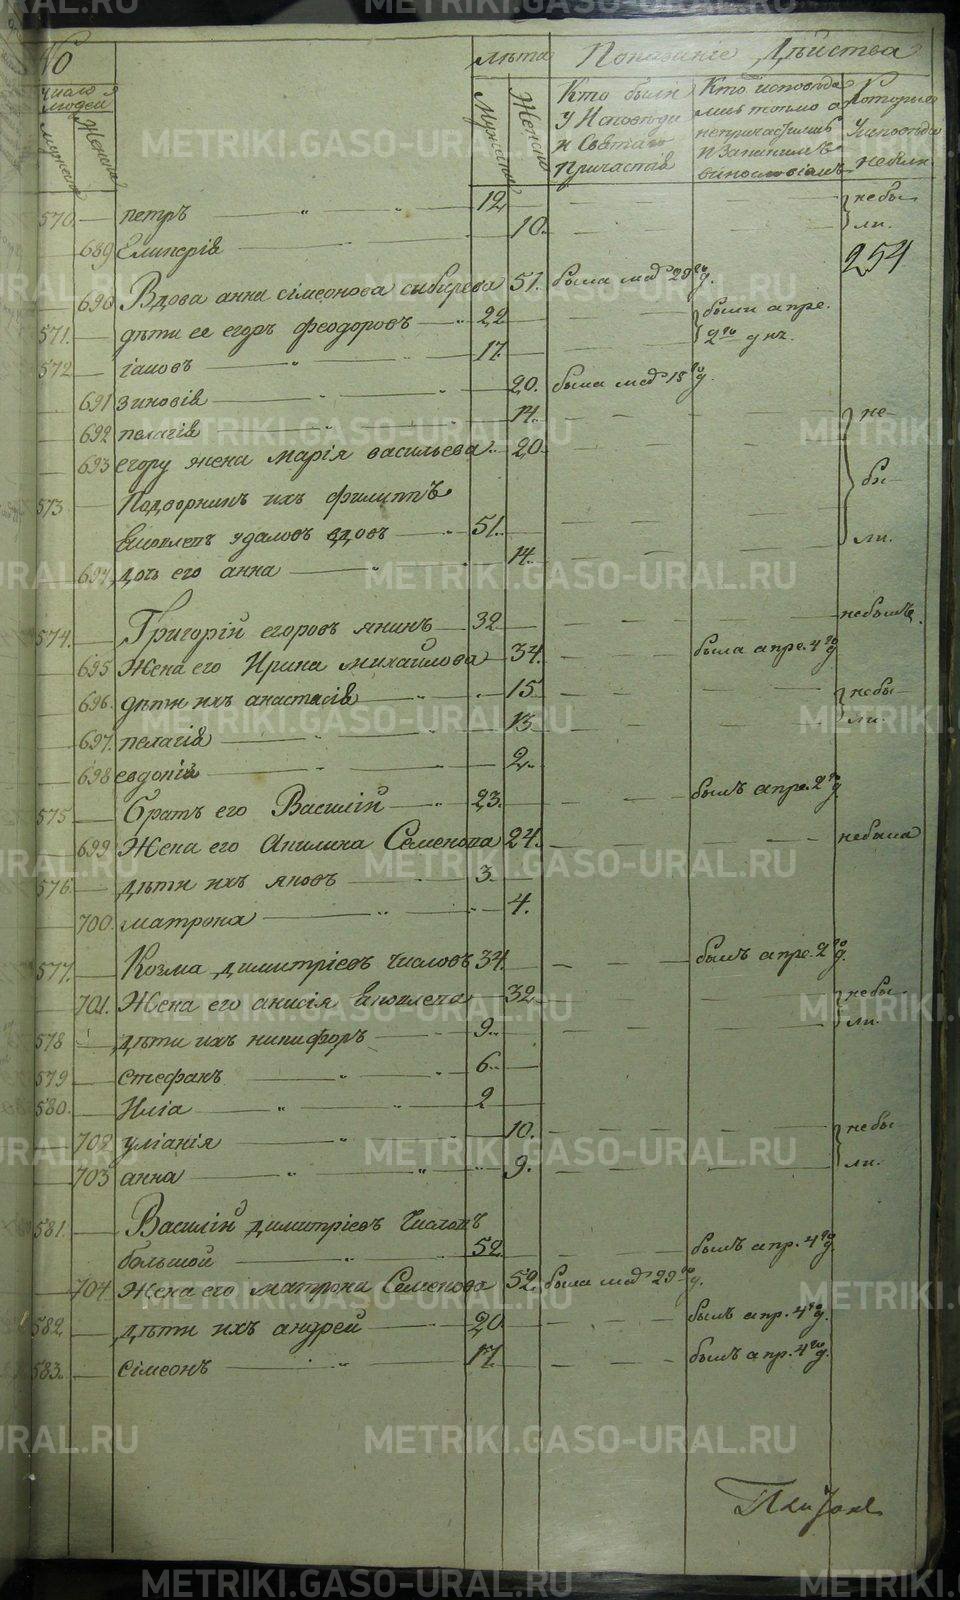 № лѣта Показаніе Дѣйства
число людей
мужеска женска
Мужеска Женска
Кто были у Исповѣди и Святаго Причастія
Кто исповѣдались токмо а непричастились
Которые у исповѣди небыли
570. петръ 12 небы-
689 Еликерія 10. ли.
254
690 Вдова анна сімеонова сибирева 51. была мар 29го д.
571. дѣти ее егоръ феодоровъ 22 были апре.
2го дня.
572 іаковъ 17
691 зиновія 20. была мар 15го д.
692 пелагія 14. не-
693 егору жена марія васильева 20 бы-
573 Подворникъ ихъ филиппъ
удаловъ вдовъ 51. ли.
694 дочь его анна 14.
574. Григорій егоровъ янинъ 32 небылъ.
695 Жена его Ирина михайлова 34. была апре. 4го д
696. дѣти ихъ анастасія 15 небы-
697. пелагія 13 ли.
698 евдокія 2.
575 братъ его Василій 23. былъ апре. 2го д.
699 Жена его Акилина Семенова 24. небыла
576 дѣти ихъ яковъ 3
700. матрона 4.
577. Козма димитріевъ Числовъ 34. былъ апре. 2го д.
701. Жена его анисія 32 небы-
578 дѣти ихъ никифоръ 9. ли.
579 стефанъ 6
580. Иліа 2
702 уліанія 10. небы-
703 анна 9. ли.
581. Василій димитріевъ Числовъ
большой 52 былъ апр. 4го д.
704. Жена его матрона Семенова 52. была мар 29го д.
582. дѣти ихъ андрей 20 былъ апр. 4го д.
583. сімеонъ 17 былъ апр. 4го д.
METRIKI.GASO-URAL.RU